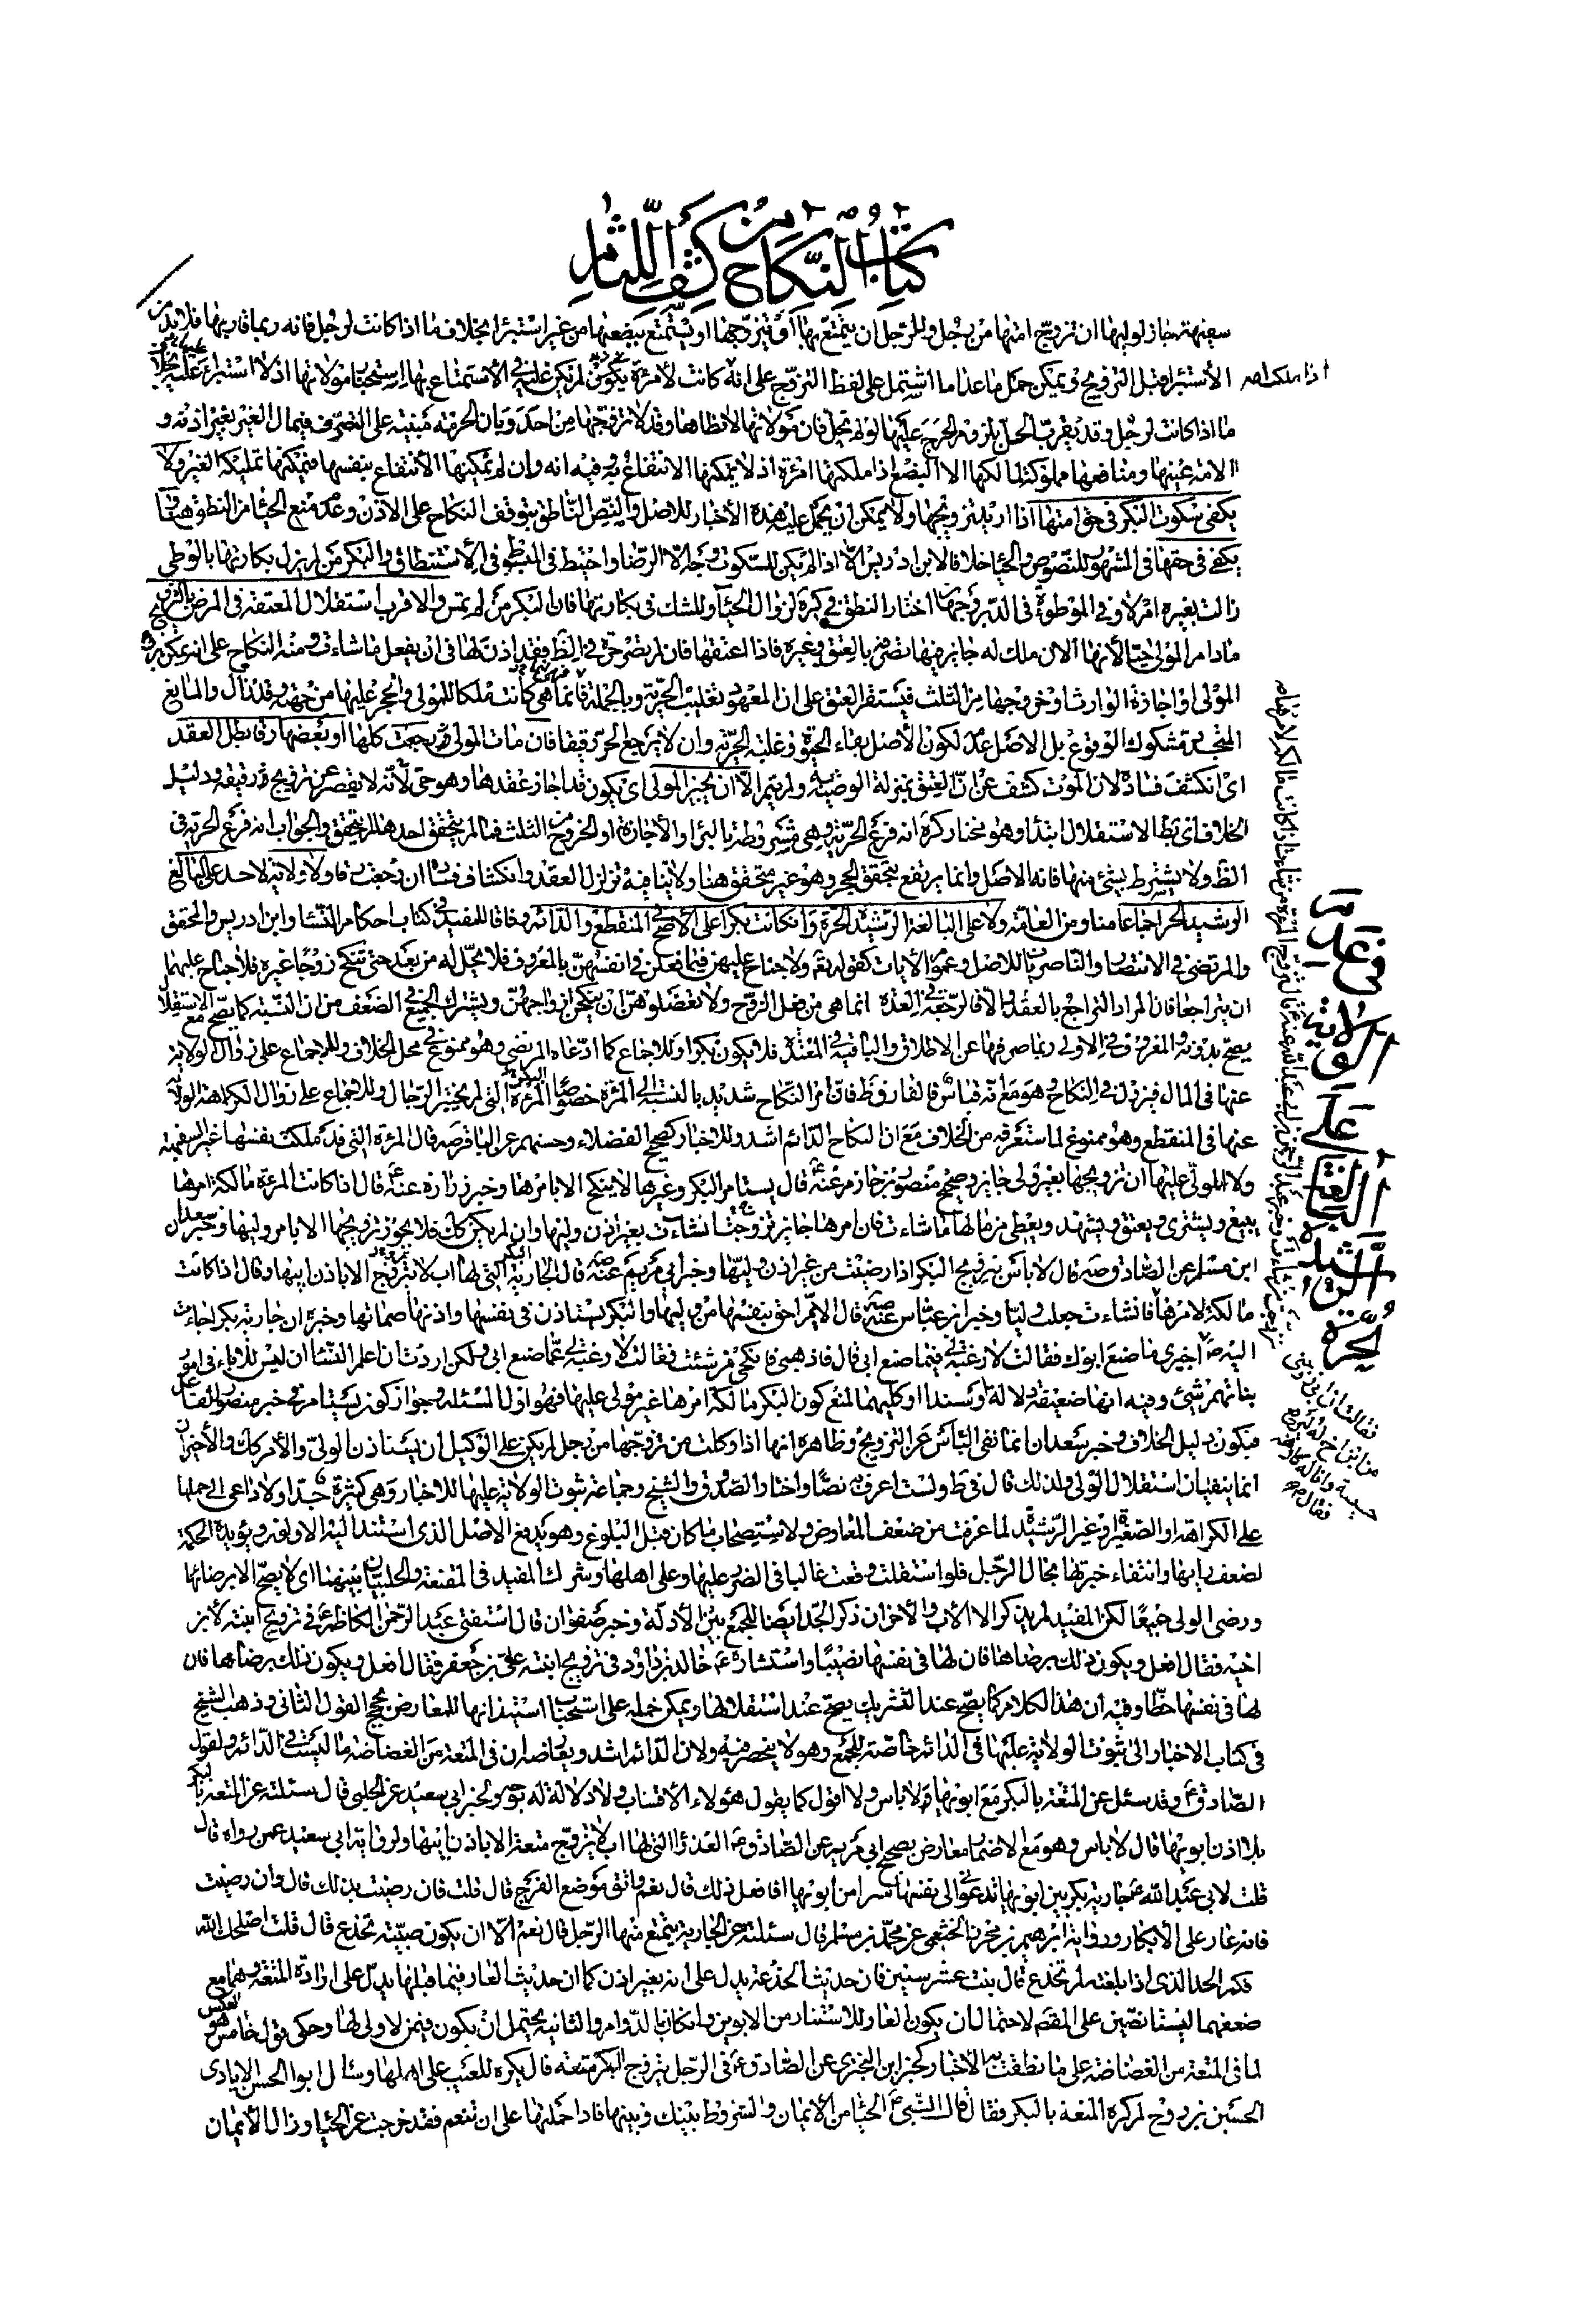 كتاب النكاح من كشف اللثام
سفيهة جاز لوليها ان تزويج امتها من رجل وللرجل ان يتمتع بها او يتزوجها او يستمتع ببضعها من غير استبراء بخلاف ما اذا كانت لرجل فانه ربما قاربها فلابد من
الاستبراء قبل التزويج ويمكن حمل ما عدا ما اشتمل على لفظ التزوج على انه كانت لامرئة لم يكن عليه في الاستمتاع بها استجاب مولاتها اذ لا استبراء عليه بخلاف
ما اذا كانت لرجل وقد يقرب الحل لزوم الحرج عليها لو لم يحل فان مولاتها لا تطاها وقد لا تزوجها من احد وبان الحرمة مبنية على التصرف في مال الغير بغير اذنه و
الامة عينها ومنافعها مملوكة لمالكها الا البضع اذا ملكتها امرئة اذ لا يمكنها الانتفاع به وفيه انه وان لم يمكنها الانتفاع بنفسها فيمكنها تمليكه الغير ولا
يكفي سكوت البكر في حق امتها اذا اريد تزويجها ولا يمكن ان يحمل عليه هذه الاخبار للاصل والنص الناطق بتوقف النكاح على الاذن وعدم منع الحياء من النطق هنا وانما
يكفي في حقها في المشهور للنصوص والحياء خلافا لابن ادريس الا اذا لم يكن للسكوت وجه الا الرضا واحتيط في المبسوط في الاستنطاق والبكر من لم يزل بكارتها بالوطي
زالت بغيره ام لا وفي الموطوءة في الدبر وجهان اختار النطق في كره لزوال الحياء وللشك في بكارتها فان البكر من لم تمس والاقرب استقلال المعتقة في المرض بالتزويج
ما دام المولى حيا لانها الان ملك له جاز فيها تصرفه بالعتق وغيره فاذا اعتقها فان لم تصر حرة في الظ فقد اذن لها في ان يفعل ما شاءت ومنه النكاح على انه يمكن برؤ
المولى او اجازة الوارث او خروجها من الثلث فيستقر العتق على ان المعهود تغليب الحرية وبالجملة فانما هي كانت ملكا للمولى والحجر عليها من جهته وقد زال والمانع
المتجدد مشكوك الوقوع بل الاصل عدمه لكون الاصل بقاء الحيوة وغلبة الحرية وان لا يرجع الحر رقيقا فان مات المولى ورجعت كلها او بعضها رقا بطل العقد
اي انكشف فساده لان الموت كشف عن ان العتق بمنزلة الوصية ولم يتم الا ان يجيز المولى اي يكون قد اجاز عقدها وهو حي لانه لا يقصر عن تزويج رقيقه ودليل
الخلاف اي بطلا الاستقلال ابتداء وهو مختار كره انه فرع الحرية وهي مشروطة بالبرء او الاجازة او الخروج من الثلث فما لم يتحقق احدها لم يتحقق والجواب انه فرع الحرية في
الظ ولا يشترط بشئ منها فانه الاصل وانما يرتفع بتحقق الحجر وهو غير متحقق هنا ولا ينافيه تزلزل العقد وانكشاف فساده ان رجعت رقا ولا ولاية لاحد على البالغ
الرشيد الحر اجماعا منا ومن العامة ولا على البالغة الرشيدة الحرة وان كانت بكرا على الاصح في المنقطع والدائم وفاقا للمفيد في كتاب احكام النساء وابن ادريس والمحقق
والمرتضى في الانتصار والناصريات للاصل وعموم الايات كقوله تعم ولا جناح عليهن فيما فعلن في انفسهن بالمعروف فلا يحل له من بعد حتى تنكح زوجا غيره فلا جناح عليهما
ان يتراجعا فان المراد التراجع بالعقد والا فالرجعة في العدة انما هي من فعل الزوج ولا تعضلوهن ان ينكحن ازواجهن ويشترك الجميع في الضعف من ان النسبة كما يصح مع الاستقلال
يصح بدونه والمعروف في الاولى ربما صرفها عن الاطلاق والباقية في المعتدة فلا يكون بكرا وللاجماع كما ادعاه المرتضى وهو ممنوع في محل الخلاف وللاجماع على زوال الولاية
عنها في المال فيزول في النكاح وهو مع انه قياس فالفارق ظ فان امر النكاح شديد بالنسبة الى المرئة خصوصا المرئة البكر التي لم يختبر الرجال وللاجماع على زوال الكراهة الولاية
عنها في المنقطع وهو ممنوع لما ستعرفه من الخلاف مع ان النكاح الدائم اشد وللاخبار كصحيح الفضلاء وحسنهم عن الباقر صه قال المرئة التي قد ملكت نفسها غير السفيهة
ولا المولى عليها ان تزويجها بغير ولي جايز وصحيح منصور بن حازم عنه ع قال يستامر البكر وغيرها لا ينكح الا بامرها وخبر زرارة عنه ع قال اذا كانت المرئة مالكة امرها
يبيع ويشتري ويعتق ويشهد ويعطي من مالها ما شاءت فان امرها جايز تزوجت انشاءت بغير اذن وليها وان لم يكن كك فلا يجوز تزويجها الا بامر وليها وخبر سعدان
ابن مسلم عن الصادق صه قال لا باس بتزويج البكر اذا رضيت من غير اذن وليها وخبر ابي مريم عنه صه قال الجارية البكر التي لها اب لا تتزوج الا باذن ابيها وقال اذا كانت
مالكة لامرها فانشاءت جعلت وليا وخبر ابن عباس عنه صه قال الايم احق بنفسها من وليها والبكر يستاذن في نفسها واذنها صماتها وخبره ان جارية بكرا جاءت
اليه ص اجيزي ما صنع ابوك فقالت لا رغبة لي فيما صنع ابي قال فاذهبي فانكحي من شئت فقالت لا رغبة لي عما صنع ابي ولكن اردت ان اعلم النساء ان ليس للاباء في امور
بناتهم شيئ وفيه انها ضعيفة دلالة وسندا او كليهما لمنع كون البكر مالكة امرها غير مولى عليها فهو اول المسئلة وجواز كون يستامر في خبر منصور للفاعل
فيكون دليل الخلاف وخبر سعدان انما نفى الباس عن التزويج وظاهره انها اذا وكلت من تزوجها من رجل لم يكن على الوكيل ان يستاذن الولي والامر كك والاخيران
انما ينفيان استقلال الولي ولذلك قال في ط ولست اعرف به نصا واختار الصدوق والشيخ وجماعة ثبوت الولاية عليها للاخبار وهي كثيرة جدا ولا داعي الى حملها
على الكراهة او الصغيرة او غير الرشيدة لما عرفت من ضعف المعارض ولاستصحاب ما كان قبل البلوغ وهو يدفع الاصل الذي استند اليه الاولون ويؤيده الحكمة
لضعف رايها وانتفاء خبرتها بحال الرجل فلو استقلت وقعت غالبا في الضرر عليها وعلى اهلها وشرك المفيد في المقنعة والحلبيان بينهما اي لا يصح الا برضائها
ورضى الولي جميعا لكن المفيد لم يذكر الا الاب والاخران ذكر الجد ايضا للجمع بين الادلة وخبر صفوان قال استفتى عبد الرحمن الكاظم ع في تزويج ابنته لابن
اخيه فقال افعل ويكون ذلك برضاها فان لها في نفسها نصيبا واستشاره ع خالد بن داود في تزويج ابنته علي بن جعفر فقال افعل ويكون ذلك برضاها فان
لها في نفسها حظا وفيه ان هذا الكلام كما يصح عند التشريك يصح عند استقلالها ويمكن حمله على استحباب استيذانها للمعارض بحجج القول الثاني وذهب الشيخ
في كتاب الاخبار الى ثبوت الولاية عليها في الدائم خاصة للجمع وهو لا ينحصر فيه ولان الدائم اشد ويعارضه ان في المتعة من الغضاضة ما ليست في الدائم ولقول
الصادق ع وقد سئل عن المتعة بالبكر مع ابويها لا باس ولا اقول كما يقول هؤلاء الاقشاب ولا دلالة له بوجه ولخبر ابي سعيد عن الحلبي قال سئلته عن المتعة بالبكر
بلا اذن ابويها قال لا باس وهو مع الاضمار معارض بصحيح ابي مريم عن الصادق ع العذراء التي لها اب لا تزوج متعة الا باذن ابيها ولرواية ابي سعيد عمن رواه قال
قلت لابي عبد الله ع جارية بكر بين ابويها تدعوني الى نفسها سرا من ابويها افافعل ذلك قال نعم واتق موضع الفرج قال قلت فان رضيت بذلك قال وان رضيت
فانه عار على الابكار ورواية ابرهيم بن محرز الخثعمي عن محمد بن مسلم قال سئلته عن الجارية يتمتع منها الرجل قال نعم الا ان يكون صبية تخدع قال قلت اصلحك الله
فكم الحد الذي اذا بلغته لم تخدع قال بنت عشر سنين فان حديث الخدعة يدل على انه بغير اذن كما ان حديث العار فيما قبلها يدل على ارادة المتعة وهما مع
ضعفهما ليستا نصين على المقصد لاحتمال ان يكون العار وللاستتار من الابوين وانكان بالدوام والثانية يحتمل ان يكون فيمن لا ولي لها وحكى قول خامس هو العكس
لما في المتعة من الغضاضة على ما نطقت به الاخبار كخبر ابن البختري عن الصادق ع في الرجل يتزوج البكر متعة قال يكره للعيب على اهلها وسئال ابو الحسن الايادي
الحسين بن روح لم كره المتعة بالبكر فقال قال النبي ص الحياء من الايمان والشروط بينك وبينها فاذا حملتها على ان تنعم فقد خرجت عن الحياء وزال الايمان
اذا ملكت امره
في عدم
الولاية
على
البالغة
الرشيدة
الحرة